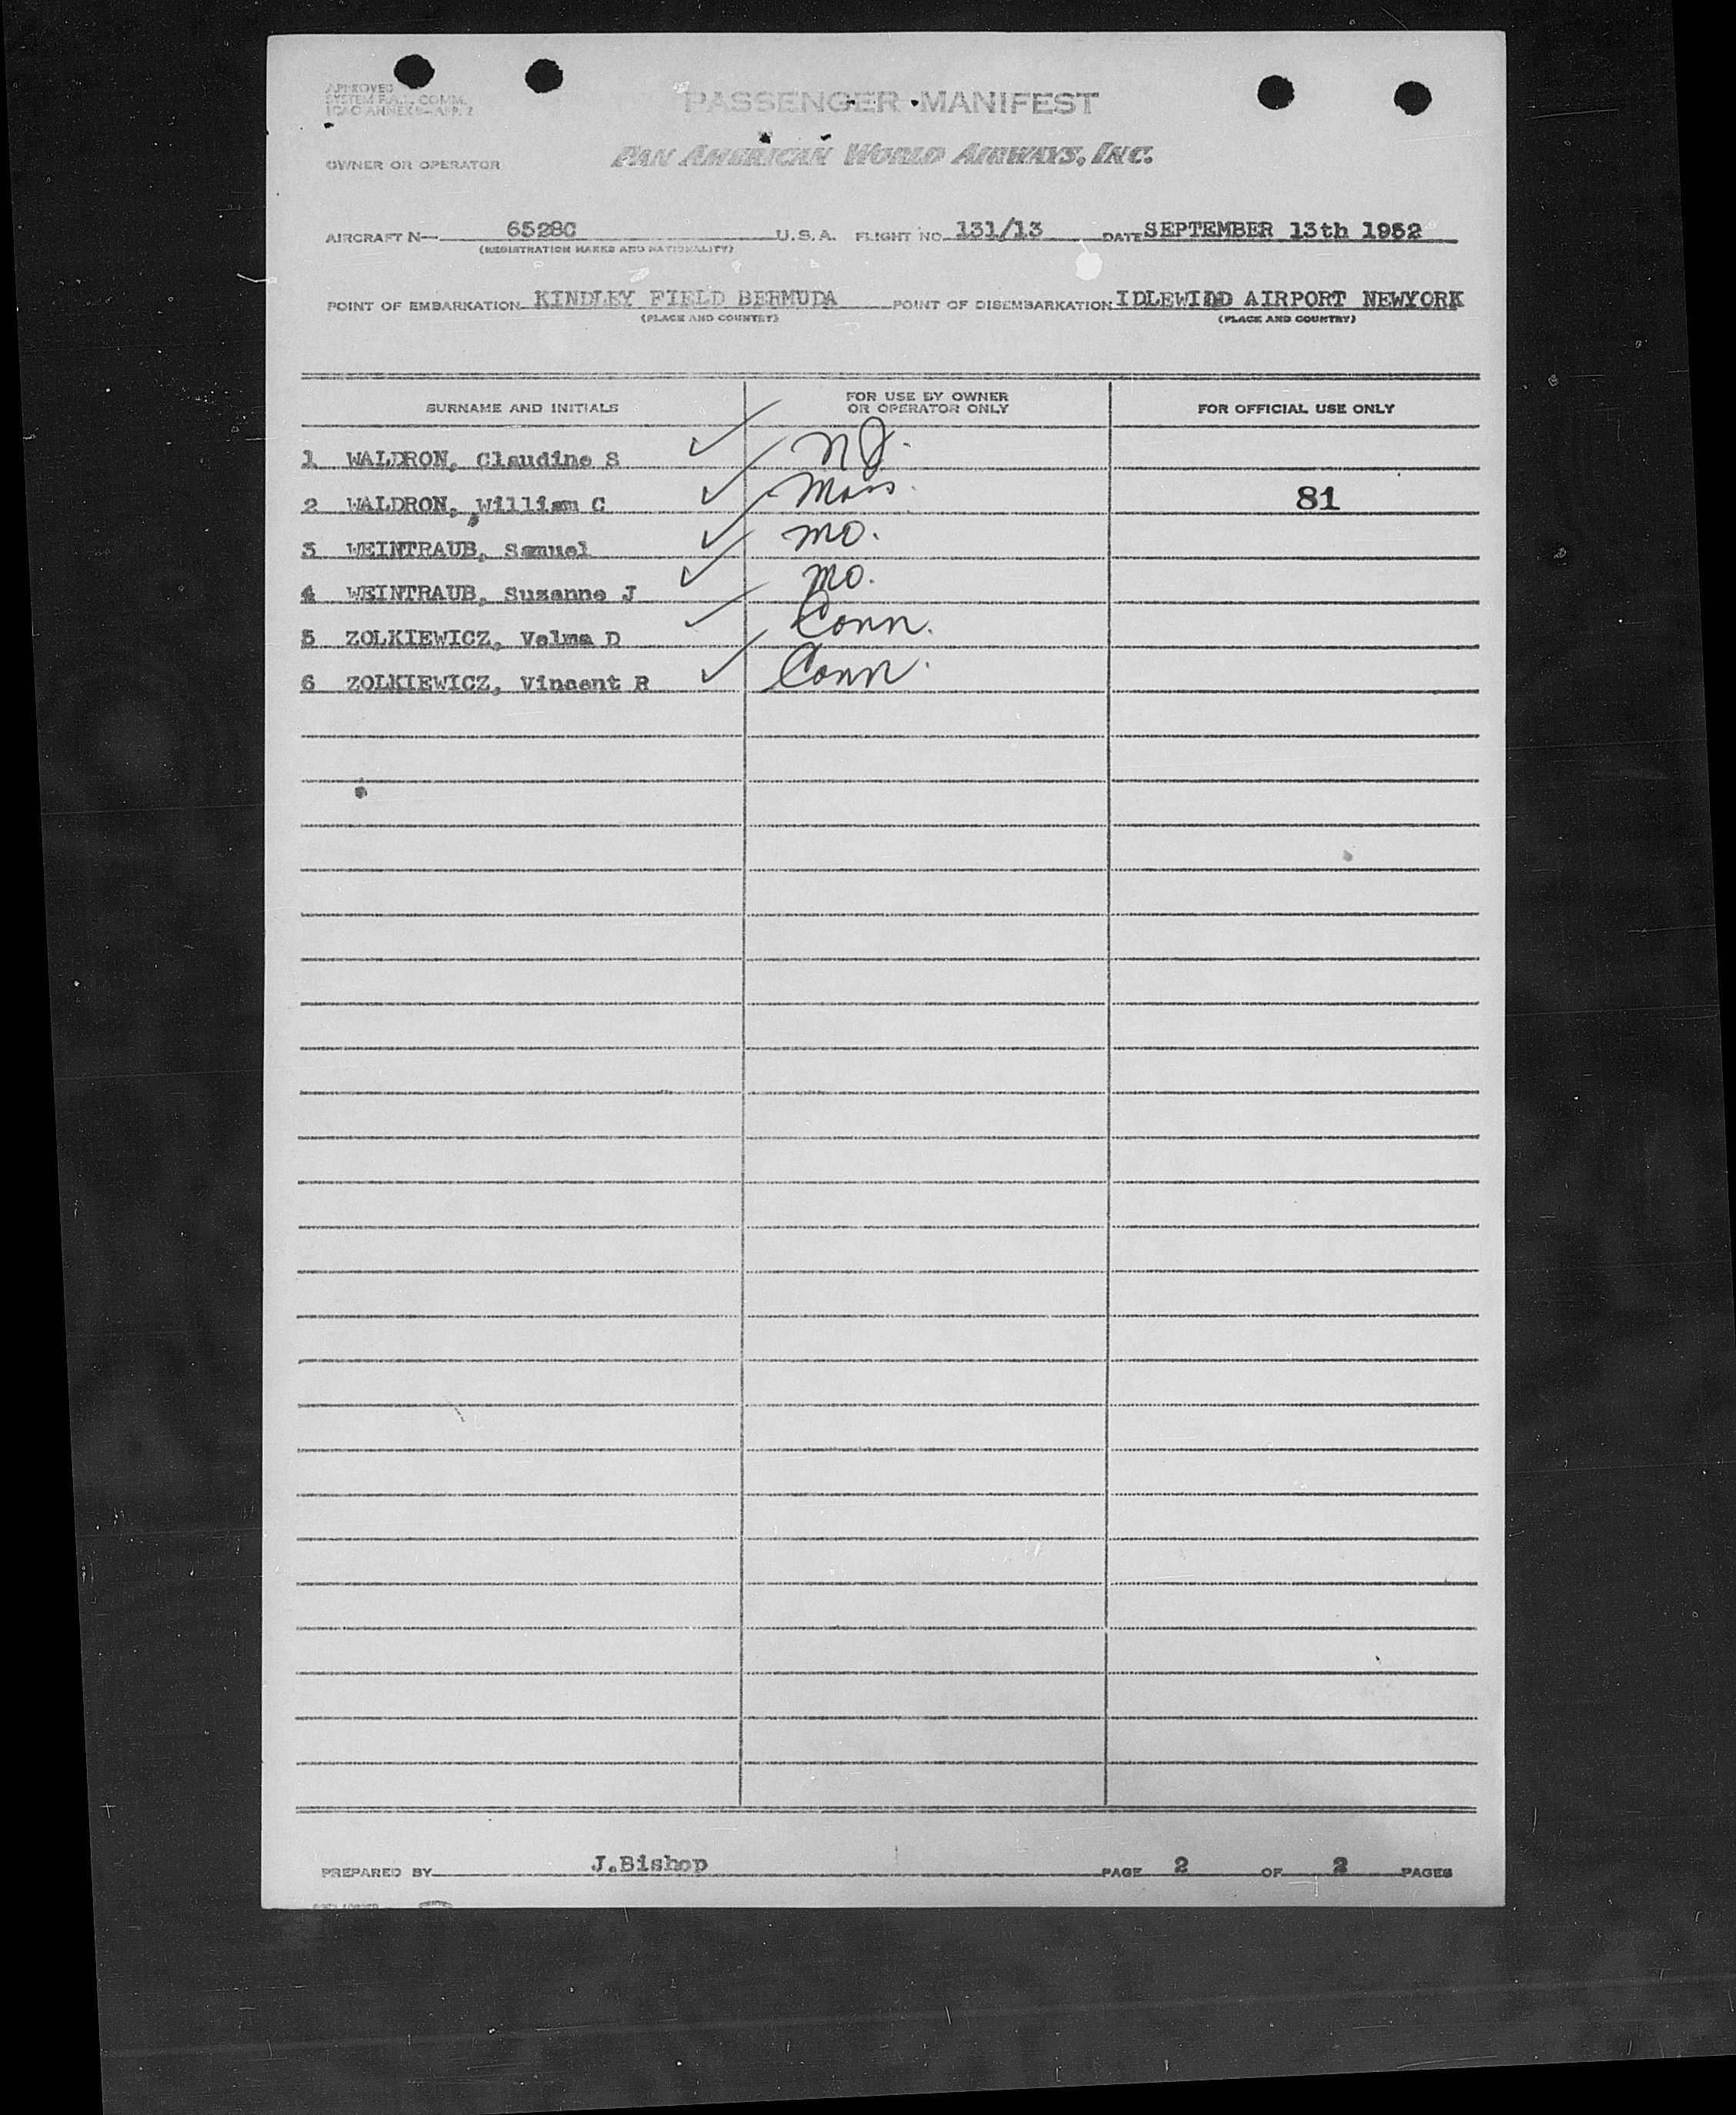 APPROVED
SYSTEM F.A.L. COMM.
ICAO ANNEX 9—APP. 2
PASSENGER MANIFEST
OWNER OR OPERATOR PAN AMERICAN WORLD AIRWAYS, INC.
AIRCRAFT N— 6528C U.S.A. FLIGHT NO. 131/13 DATE SEPTEMBER 13th 1952
(REGISTRATION MARKS AND NATIONALITY)
POINT OF EMBARKATION KINDLEY FIELD BERMUDA POINT OF DISEMBARKATION IDLEWIDD AIRPORT NEWYORK
(PLACE AND COUNTRY) (PLACE AND COUNTRY)
SURNAME AND INITIALS FOR USE BY OWNER OR OPERATOR ONLY FOR OFFICIAL USE ONLY
1 WALDRON, Claudine S ✓ NJ.
2 WALDRON, William C ✓ Mass. 81
3 WEINTRAUB, Samuel ✓ Mo.
4 WEINTRAUB, Suzanne J ✓ Mo.
5 ZOLKIEWICZ, Velma D ✓ Conn.
6 ZOLKIEWICZ, Vincent R ✓ Conn.
PREPARED BY J.Bishop PAGE 2 OF 2 PAGES